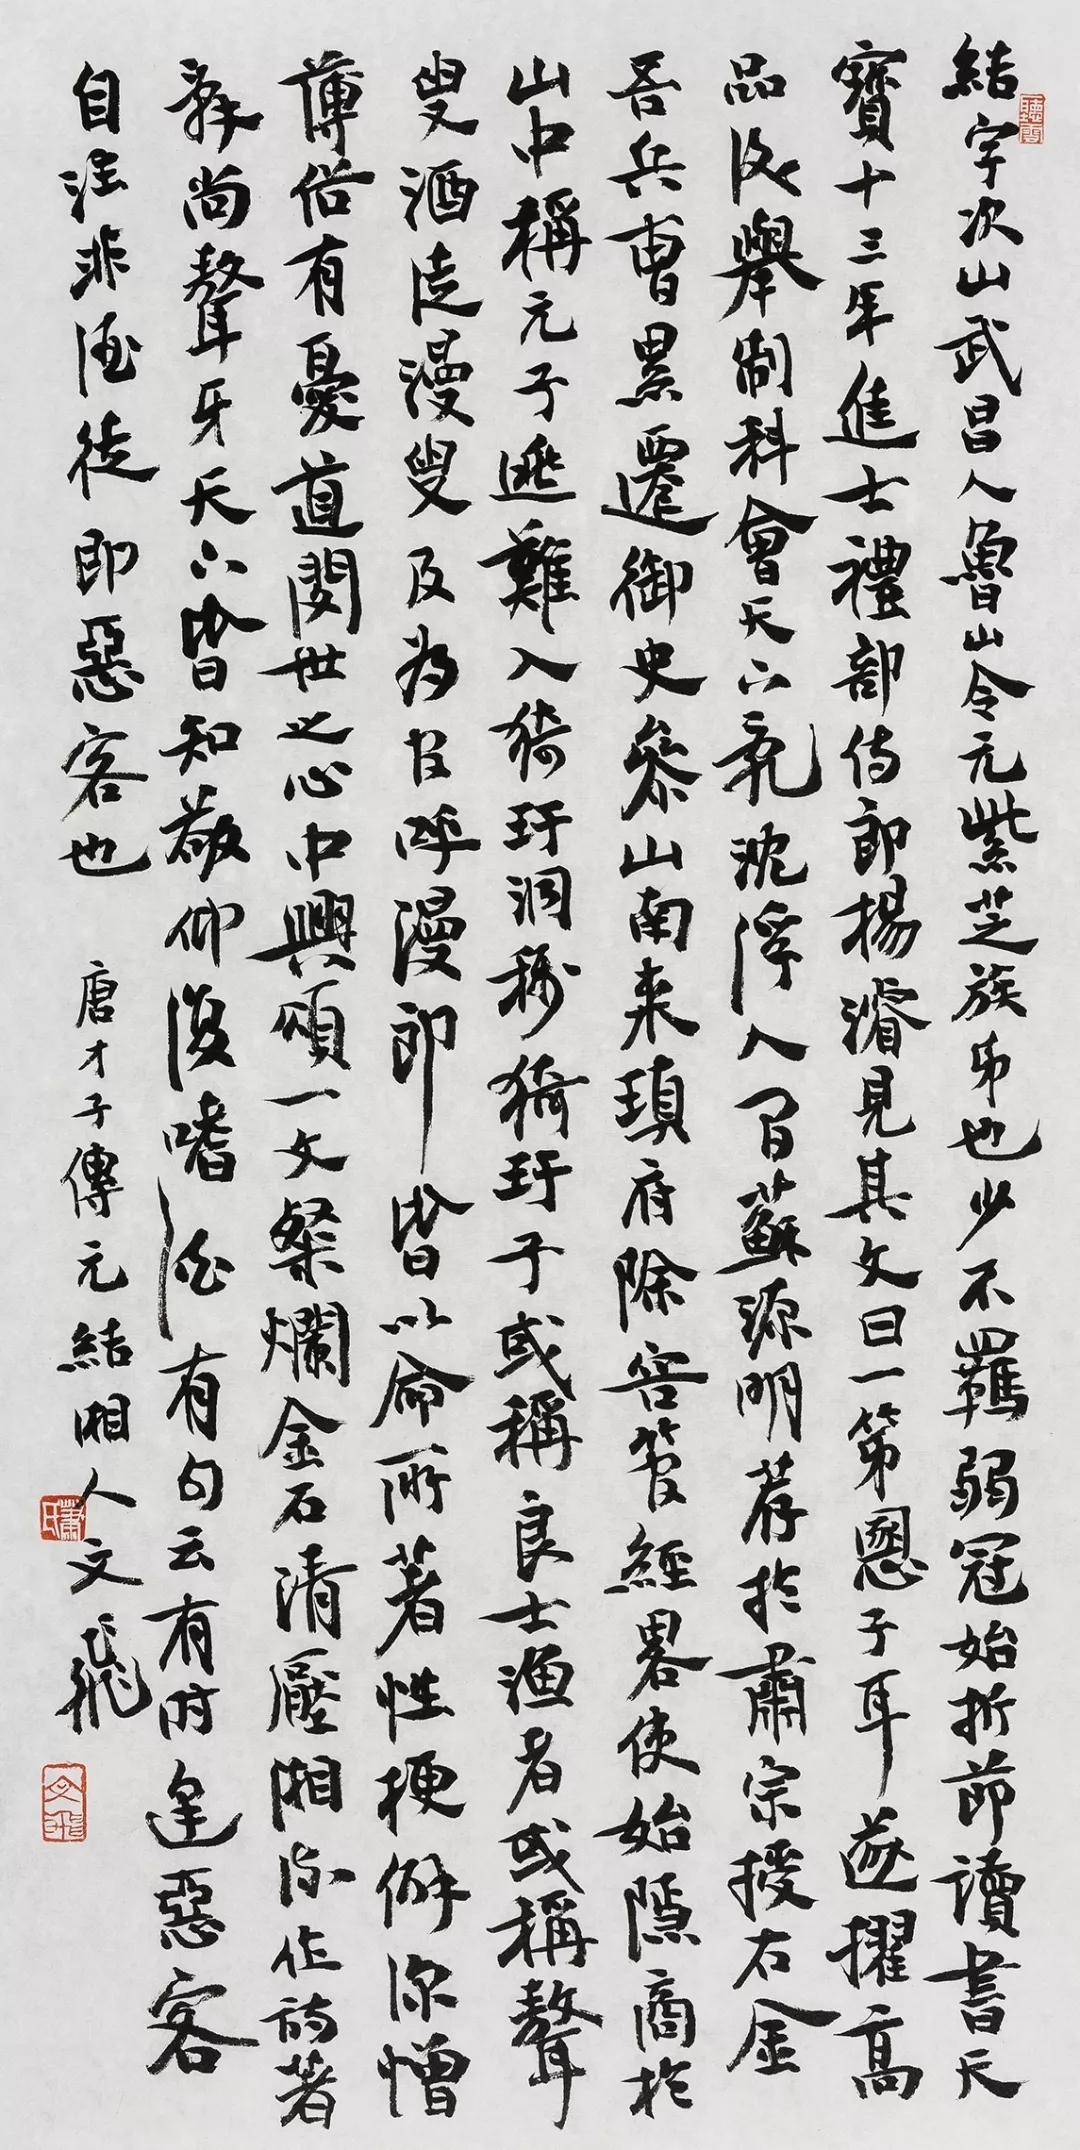 結字次山武昌人魯山令元紫芝族弟也少不羈弱冠始折節讀書天
寶十三年進士禮部侍郎楊濬見其文曰一第慁子耳遂擢高
品後舉制科會天下亂沈浮人間蘇源明荐於肅宗授右金
吾兵曹累遷御史參山南來瑱府除容管經畧使始隱商於
山中稱元子逃難入猗玗洞稱猗玗子或稱良士漁者或稱聱
叟酒徒漫叟及為官呼漫郎皆以命所著性梗僻深憎
薄俗有憂道閔世之心中興頌一文粲爛金石清壓湘流作詩著
辭尚聱牙天下皆知敬仰復嗜酒有句云有时逢惡客
自注非酒徒即惡客也 唐才子傳元結湘人文飛
聽雲
蕭氏
文飛